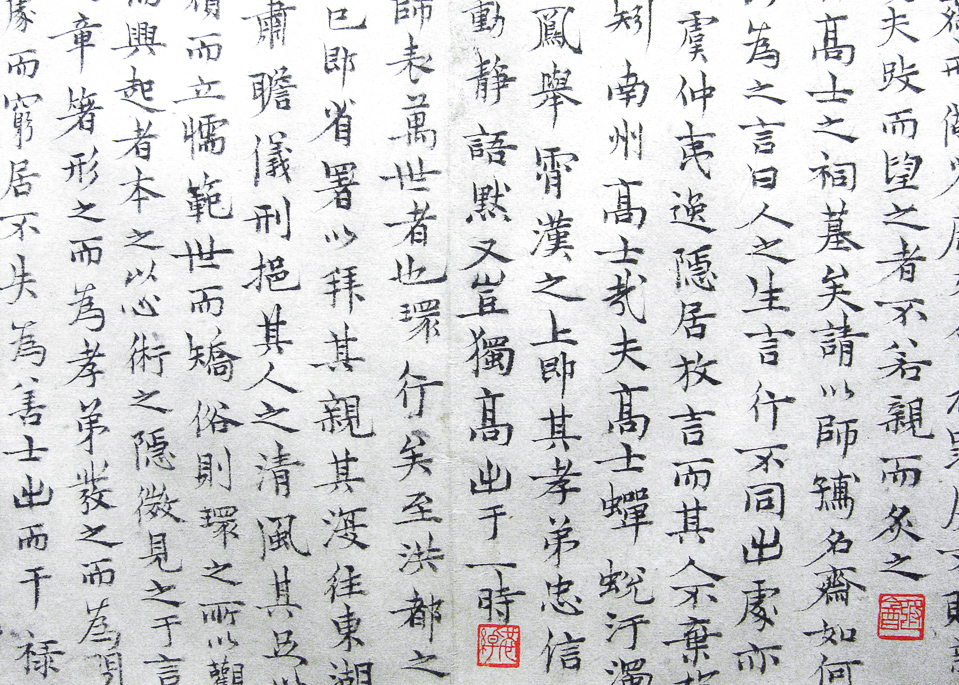 夫跂而望之者不若親而炙之
高士之祠墓矣請以師鏄名齋如何
為之言曰人之生言行不同出處亦
虞仲夷逸隱居放言而其人不棄
矧南州高士哉夫高士蟬蛻汙濁
鳳舉霄漢之上即其孝弟忠信
動靜語默又豈獨高出于一時
師表萬世者也環行矣至洪都之
已即省署以拜其親其復往東湖
肅瞻儀刑挹其人之清風其
而立懦範世而矯俗則環之所以觀
興起者本之以心術之隱微見之于言
章箸形之而為孝弟發之而為
而窮居不失為善士出而干祿